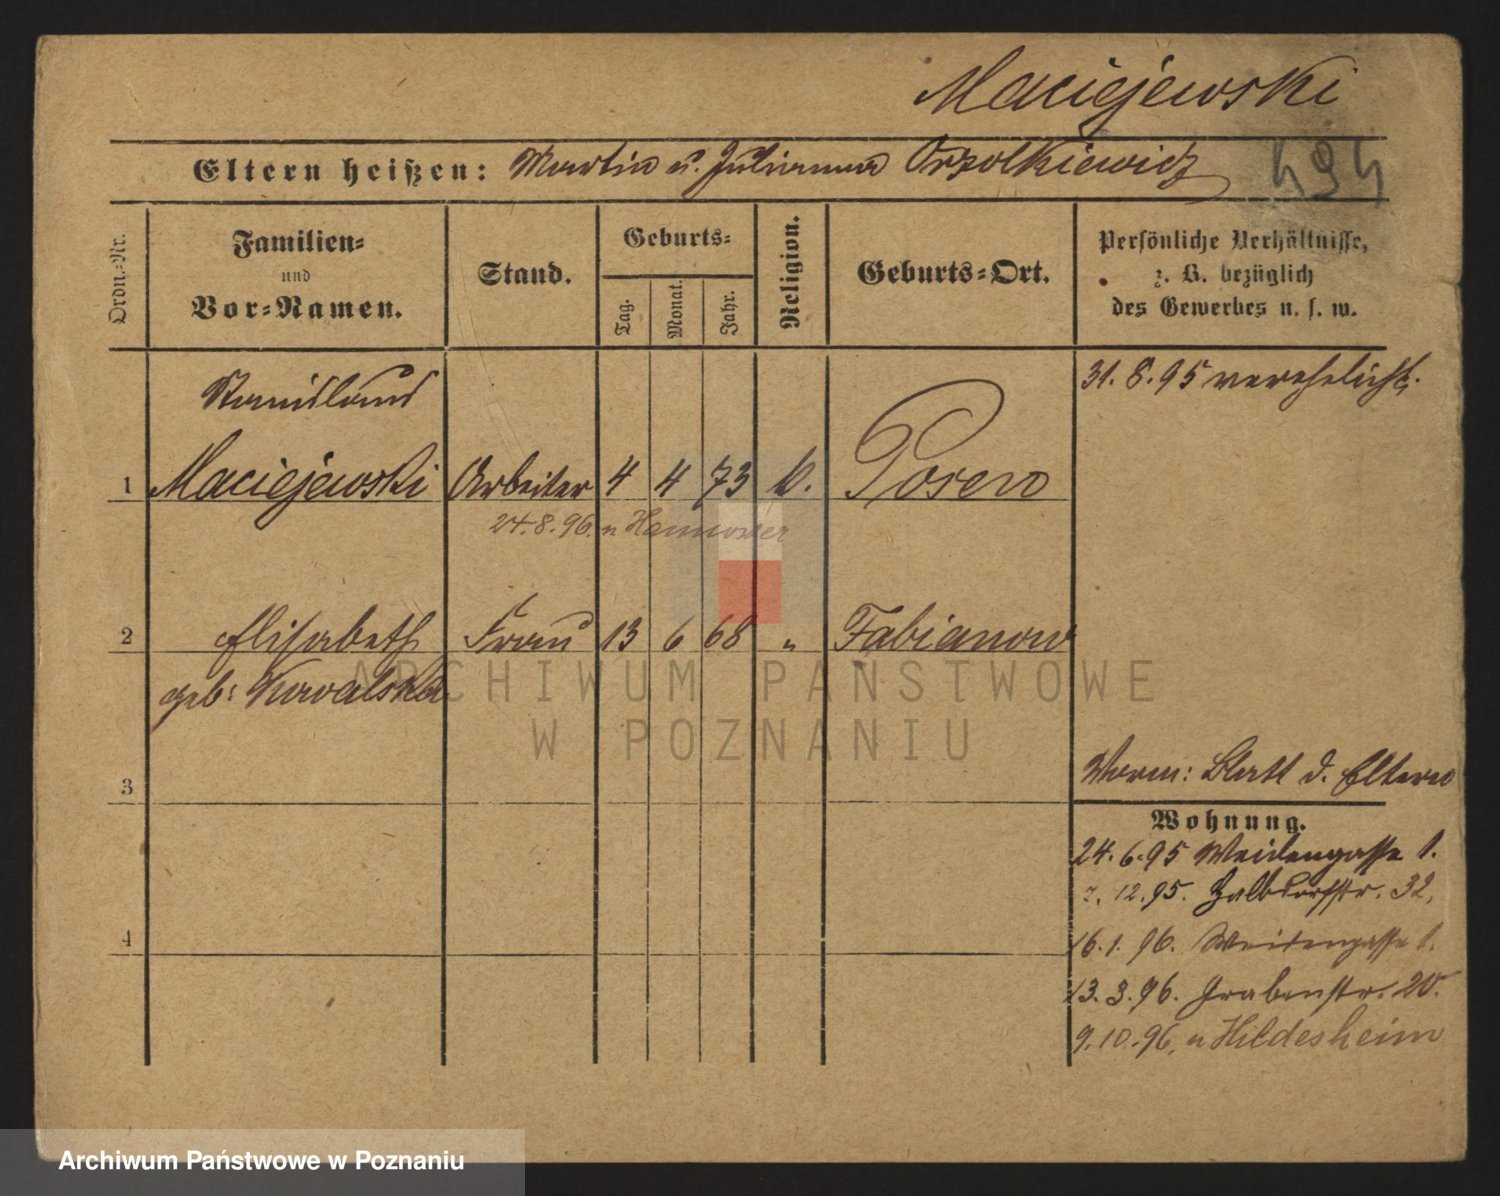 Maciejewski
Eltern heißen: Martin u. Julianna Orzolkiewicz
494
Ordn.-Nr.
Familien-
und
Vor-Namen.
Stand.
Geburts-
Tag.
Monat.
Jahr.
Religion.
Geburts-Ort.
Persönliche Verhältnisse,
z. B. bezüglich
des Gewerbes u. s. w.
31. 8. 95 verehelicht.
Stanislaus
1 Maciejewski Arbeiter 4 4 73 k. Posen
24. 8. 96. n Hannover
2 Elisabeth Frau 13 6 68 " Fabianowo
geb: Kowalska
ARCHIWUM PAŃSTWOWE
W POZNANIU
3
Blatt d. Eltern
Wohnung.
24. 6. 95 Weidengasse 1.
12. 95. Halbdorfstr. 32.
4
16. 1. 96. Weidengasse 1.
13. 3. 96. Grabenstr. 20.
9. 10. 96. n Hildesheim
Archiwum Państwowe w Poznaniu